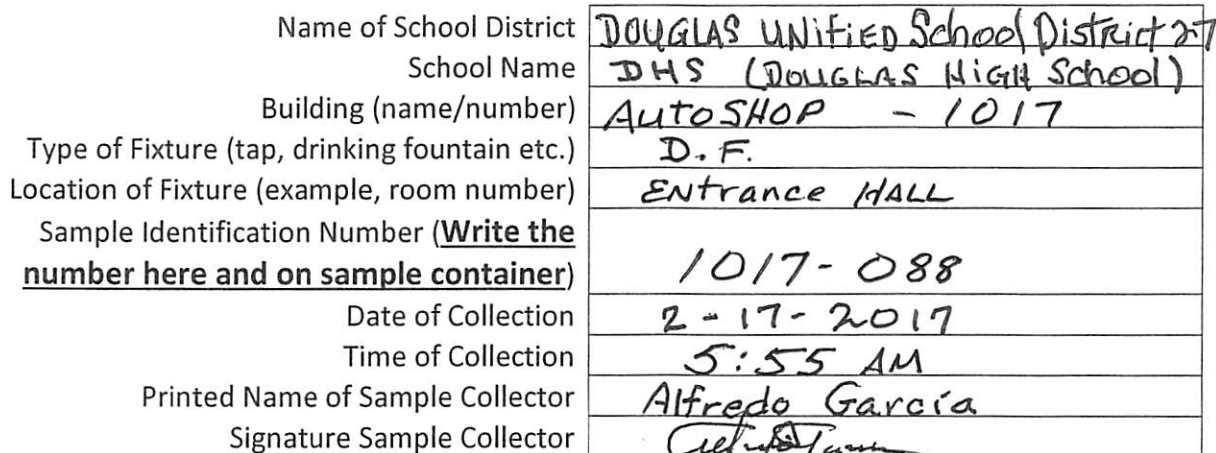 Name of School District DOUGLAS UNiFiED School District 27
School Name DHS (DOUGLAS HiGH School)
Building (name/number) AutoSHOP - 1017
Type of Fixture (tap, drinking fountain etc.) D.F.
Location of Fixture (example, room number) ENtrance HALL
Sample Identification Number (Write the
number here and on sample container) 1017-088
Date of Collection 2-17-2017
Time of Collection 5:55 AM
Printed Name of Sample Collector Alfredo García
Signature Sample Collector